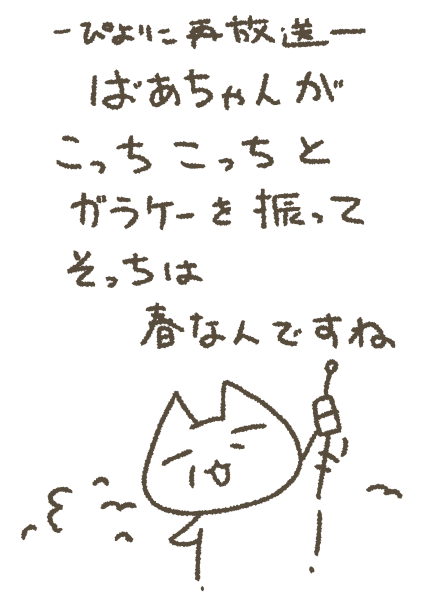 －ぴよりに再放送－
ばあちゃんが
こっちこっちと
ガラケーを振って
そっちは
春なんですね